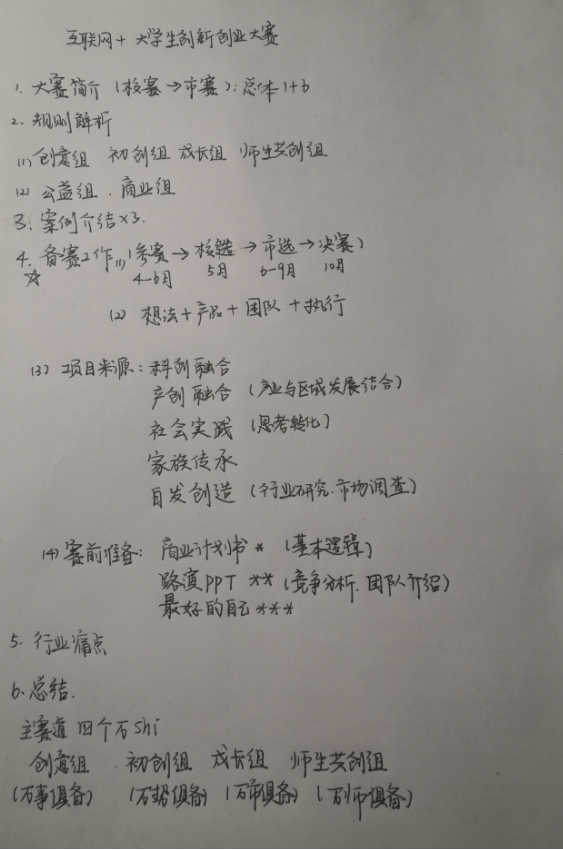 互联网+ 大学生创新创业大赛
1. 大赛简介 (校赛→市赛): 总体1+6
2. 规则解析
(1) 创意组 初创组 成长组 师生共创组
(2) 公益组、商业组
3. 案例介绍×3.
4. 备赛工作 (1) (参赛→校选→市选→决赛)
☆ 4-6月 5月 6-9月 10月
(2) 想法+产品+团队+执行
(3) 项目来源: 科创融合
产创融合 (产业与区域发展结合)
社会实践 (思考转化)
家族传承
自发创造 (行业研究.市场调查)
(4) 赛前准备: 商业计划书 * (基本逻辑)
路演PPT ** (竞争分析.团队介绍)
最好的自己 ***
5. 行业痛点
6. 总结.
主赛道 四个万shi
创意组 初创组 成长组 师生共创组
(万事俱备) (万势俱备) (万市俱备) (万师俱备)